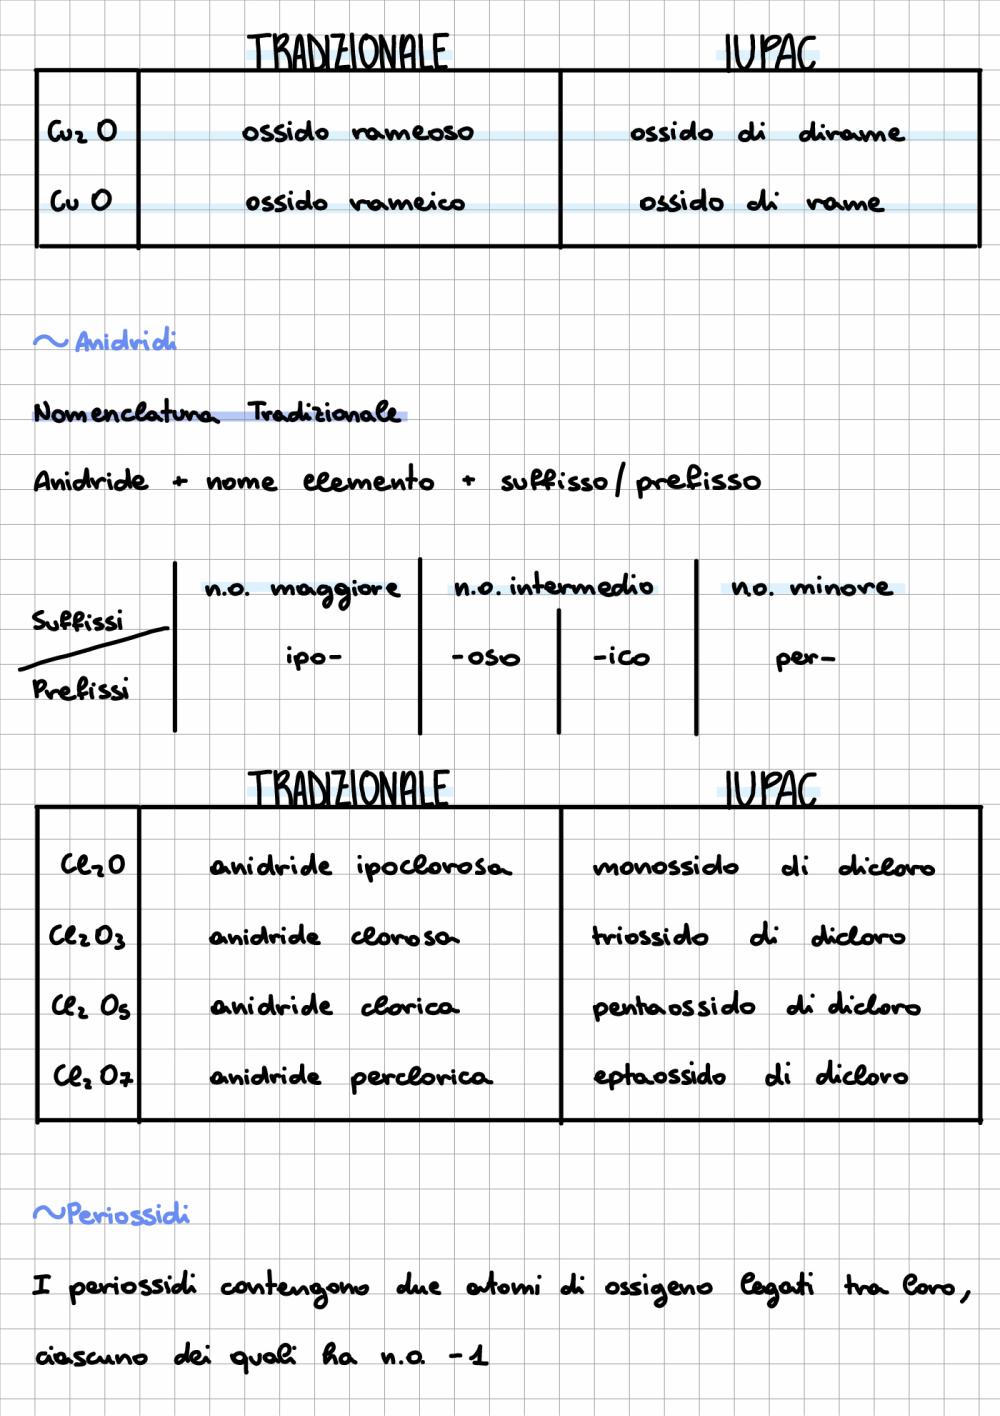 TRADIZIONALE IUPAC
Cu₂O ossido rameoso ossido di dirame
CuO ossido rameico ossido di rame
~Anidridi
Nomenclatura Tradizionale
Anidride + nome elemento + suffisso/prefisso
n.o. maggiore n.o. intermedio n.o. minore
Suffissi
ipo- -oso -ico per-
Prefissi
TRADIZIONALE IUPAC
Cl₂O anidride ipoclorosa monossido di dicloro
Cl₂O₃ anidride clorosa triossido di dicloro
Cl₂O₅ anidride clorica pentaossido di dicloro
Cl₂O₇ anidride perclorica eptaossido di dicloro
~Periossidi
I periossidi contengono due atomi di ossigeno legati tra loro,
ciascuno dei quali ha n.o. -1